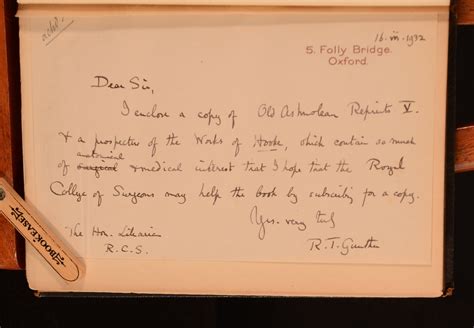 ackd.
16. iii. 1932
5. Folly Bridge.
Oxford.
Dear Sir,
I enclose a copy of Old Ashmolean Reprints V.
& a prospectus of the Works of Hooke, which contain so much
anatomical
of surgical & medical interest that I hope that the Royal
College of Surgeons may help the book by subscribing for a copy.
Yrs. very truly
R. T. Gunther
The Hon. Librarian
R.C.S.
BOOKEASE